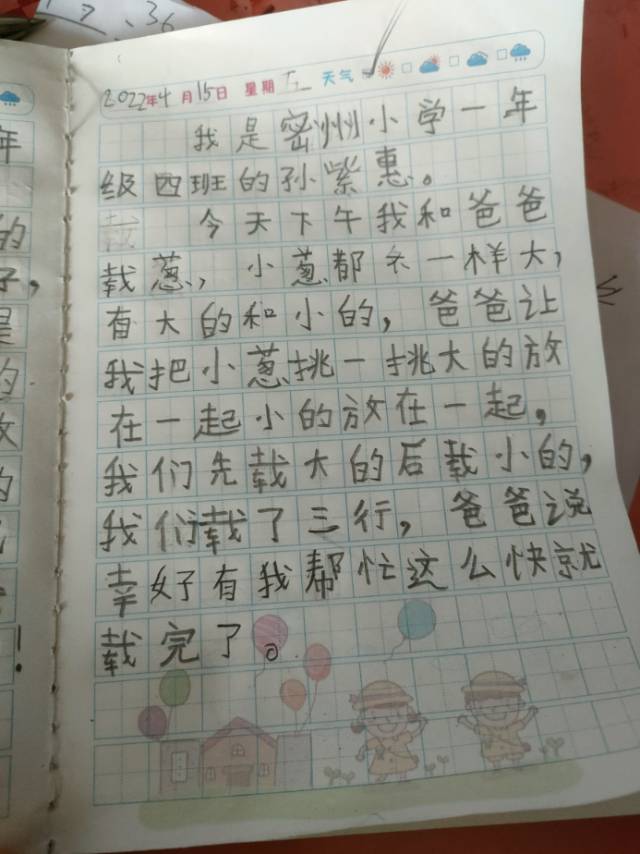 2022年4月15日 星期五 天气
我是密州小学一年
级四班的孙紫惠。
今天下午我和爸爸
载葱，小葱都不一样大，
有大的和小的，爸爸让
我把小葱挑一挑大的放
在一起小的放在一起，
我们先载大的后载小的，
我们载了三行，爸爸说
幸好有我帮忙这么快就
载完了。